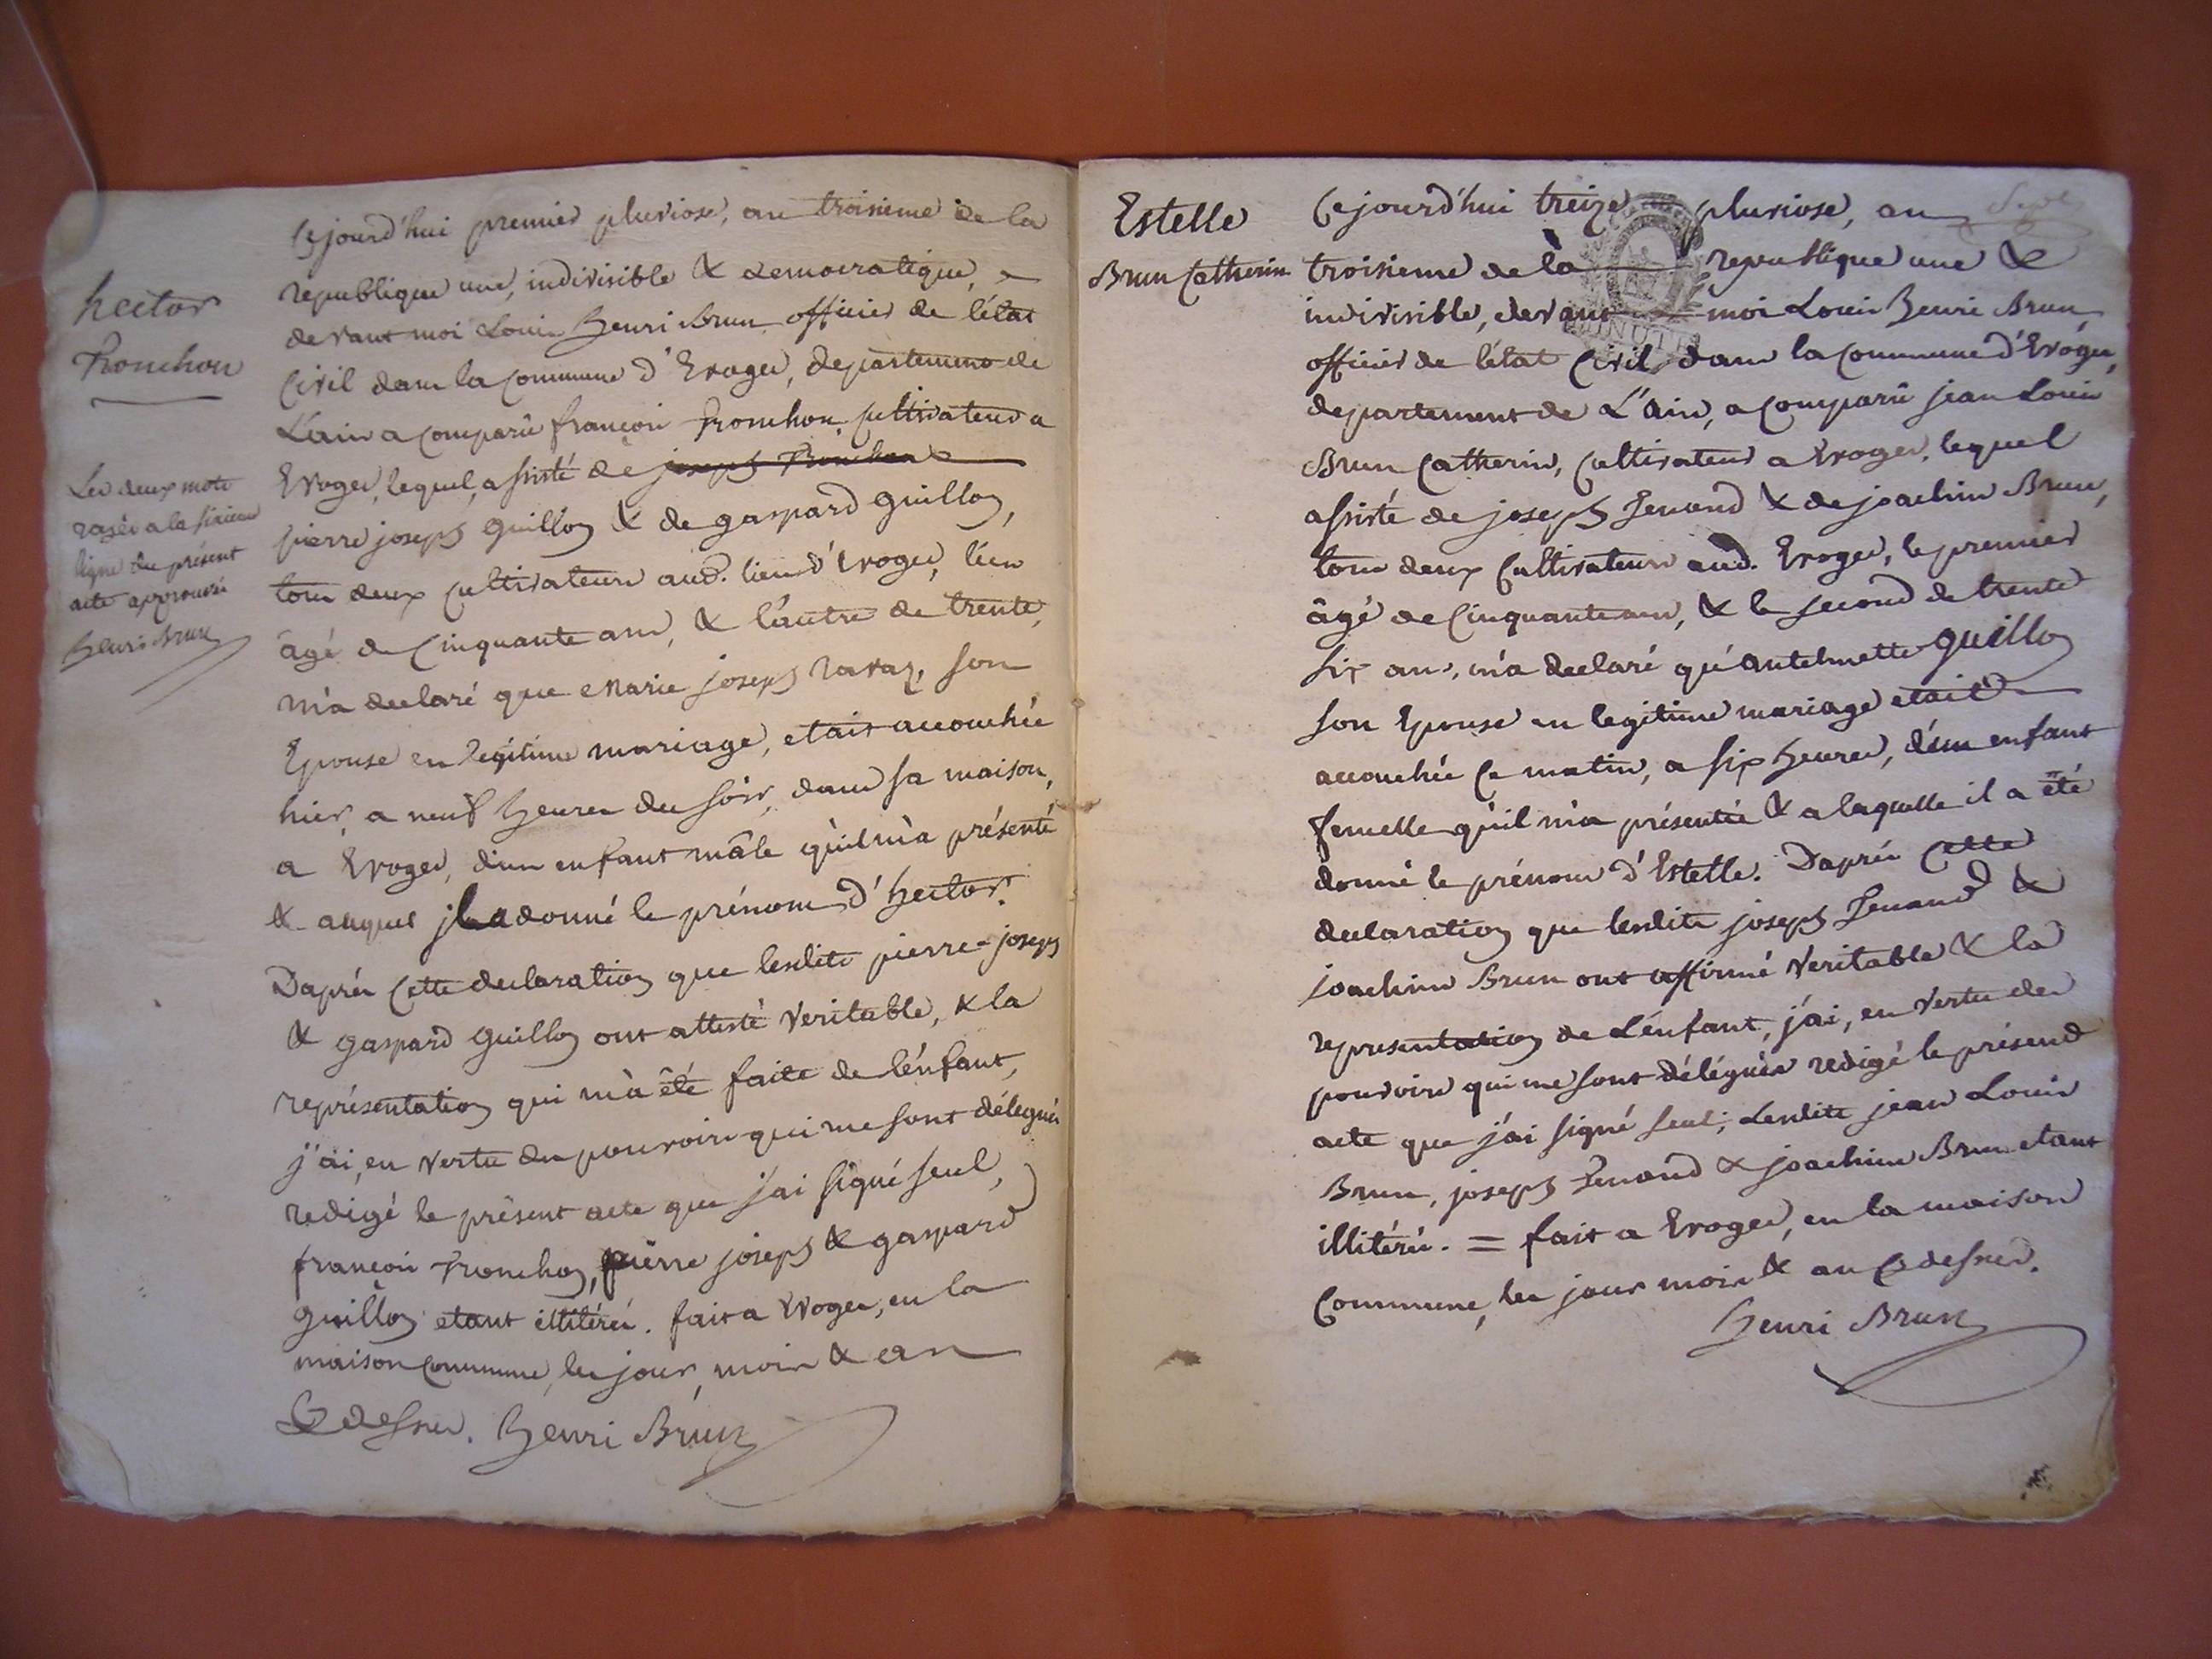 hector
Tronchon
Les deux mots
rayés a la sixieme
ligne du présent
acte approuvés
Henri Brun
Cejourd'hui premier pluviose, an troisieme de la
republique une, indivisible & democratique,
devant moi Louis Henri Brun officier de l'état
Civil dans la Commune d'Evoges, departement de
L'ain a Comparû françois Tronchon Cultivateur a
Evoges, lequel, assisté de joseph Tronchon
pierre joseph guillon & de gaspard guillon,
tous deux Cultivateurs aud. lieu d'Evoges, l'un
âgé de Cinquante ans, & l'autre de trente,
m'a declaré que Marie joseph ravaz, son
Epouse en legitime mariage, etait accouchée
hier, a neuf heures du soir, dans sa maison,
a Evoges, d'un enfant mâle qu'il m'a présenté
& auquel il a donné le prénom d'hector.
D'après Cette declaration que lesdits pierre-joseph
& gaspard guillon ont attesté veritable, & la
représentation qui m'a été faite de l'énfant,
j'ai, en vertu des pouvoirs qui me sont délegués
redigé le présent acte que j'ai signé seul,
françois Tronchon, pierre joseph & gaspard
guillon etant illitérés. fait a Evoges, en la
maison Commune, les jour, mois & an
Cy dessus. Henri Brun
Estelle
Brun Catherin
Cejourd'hui treize pluviose, an
troisieme de là republique une &
indivisible, devant moi Louis Henri Brun,
officier de l'état Civil dans la Commune d'Evoges,
departement de L'Ain, a Comparû jean Louis
Brun Catherin, Cultivateur a Evoges, lequel
assisté de joseph Jenand & de joachim Brun,
tous deux Cultivateurs aud. Evoges, le premier
âgé de Cinquante ans, & le second de trente
six ans, m'a declaré qu'Antelmette guillon
son Epouse en legitime mariage etait
accouchée Ce matin, a six heures, d'un enfant
femelle qu'il m'a présentée & a laquelle il a été
donné le prénom d'Estelle. D'après Cette
declaration que lesdits joseph Jenand &
joachim Brun ont affirmé veritable & la
representation de L'énfant, j'ai, en vertu des
pouvoirs qui me sont délégués redigé le présend
acte que j'ai signé seul; Lesdits jean Louis
Brun, joseph Jenand & joachim Brun etant
illitérés. = fait a Evoges, en la maison
Commune, les jour mois & an Cy dessus.
Henri Brun